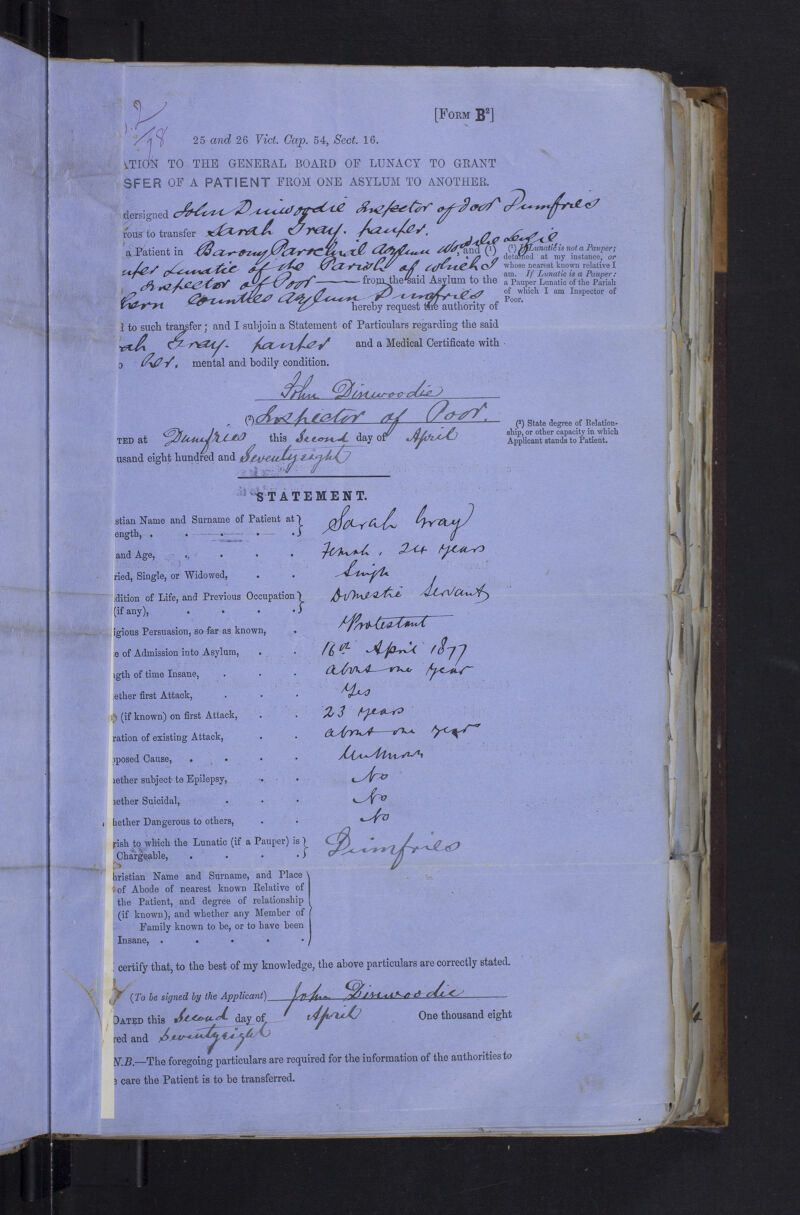 2
/78
[FORM B²]
25 and 26 Vict. Cap. 54, Sect. 16.
ATION TO THE GENERAL BOARD OF LUNACY TO GRANT
SFER OF A PATIENT FROM ONE ASYLUM TO ANOTHER.
dersigned John Dinwoodie Inspector of Poor Dumfries
rous to transfer Sarah Gray. pauper.
a Patient in Barony Parochial Asylum Woodilie Lenzie, and (¹)
uper Lunatic of the Parish of which I
Inspector of Poor — from the said Asylum to the
hern Counties Asylum Dumfries
hereby request the authority of
(¹) If Lunatic is not a Pauper;
detained at my instance, or
whose nearest known relative I
am. If Lunatic is a Pauper:
a Pauper Lunatic of the Parish
of which I am Inspector of
Poor.
l to such transfer; and I subjoin a Statement of Particulars regarding the said
ah Gray. pauper and a Medical Certificate with
o her. mental and bodily condition.
John Dinwoodie
(²) Inspector of Poor.
(²) State degree of Relation-
ship, or other capacity in which
Applicant stands to Patient.
TED at Dumfries this Second day of April
usand eight hundred and Seventy eight
STATEMENT.
stian Name and Surname of Patient at
ength, . Sarah Gray
and Age, Female. 24 years
ried, Single, or Widowed, Single
dition of Life, and Previous Occupation
(if any), Domestic Servant
igious Persuasion, so far as known, Protestant
e of Admission into Asylum, 16th April 1877
gth of time Insane, about one year
ether first Attack, Yes
(if known) on first Attack, 23 years
ration of existing Attack, about one year
posed Cause, Unknown
ether subject to Epilepsy, No
ether Suicidal, No
hether Dangerous to others, No
rish to which the Lunatic (if a Pauper) is
Chargeable, Dumfries
hristian Name and Surname, and Place
of Abode of nearest known Relative of
the Patient, and degree of relationship
(if known), and whether any Member of
Family known to be, or to have been
Insane, .
certify that, to the best of my knowledge, the above particulars are correctly stated.
(To be signed by the Applicant) John Dinwoodie
DATED this Second day of April One thousand eight
red and Seventy eight
N.B.—The foregoing particulars are required for the information of the authorities to
e care the Patient is to be transferred.